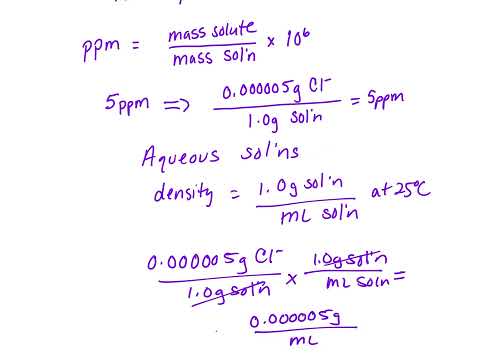 ppm = mass solute / mass sol'n × 10⁶
5ppm => 0.000005g Cl⁻ / 1.0g sol'n = 5ppm
Aqueous sol'ns
density = 1.0g sol'n / mL sol'n at 25°C
0.000005g Cl⁻ / 1.0g sol'n × 1.0g sol'n / mL soln =
0.000005g / mL